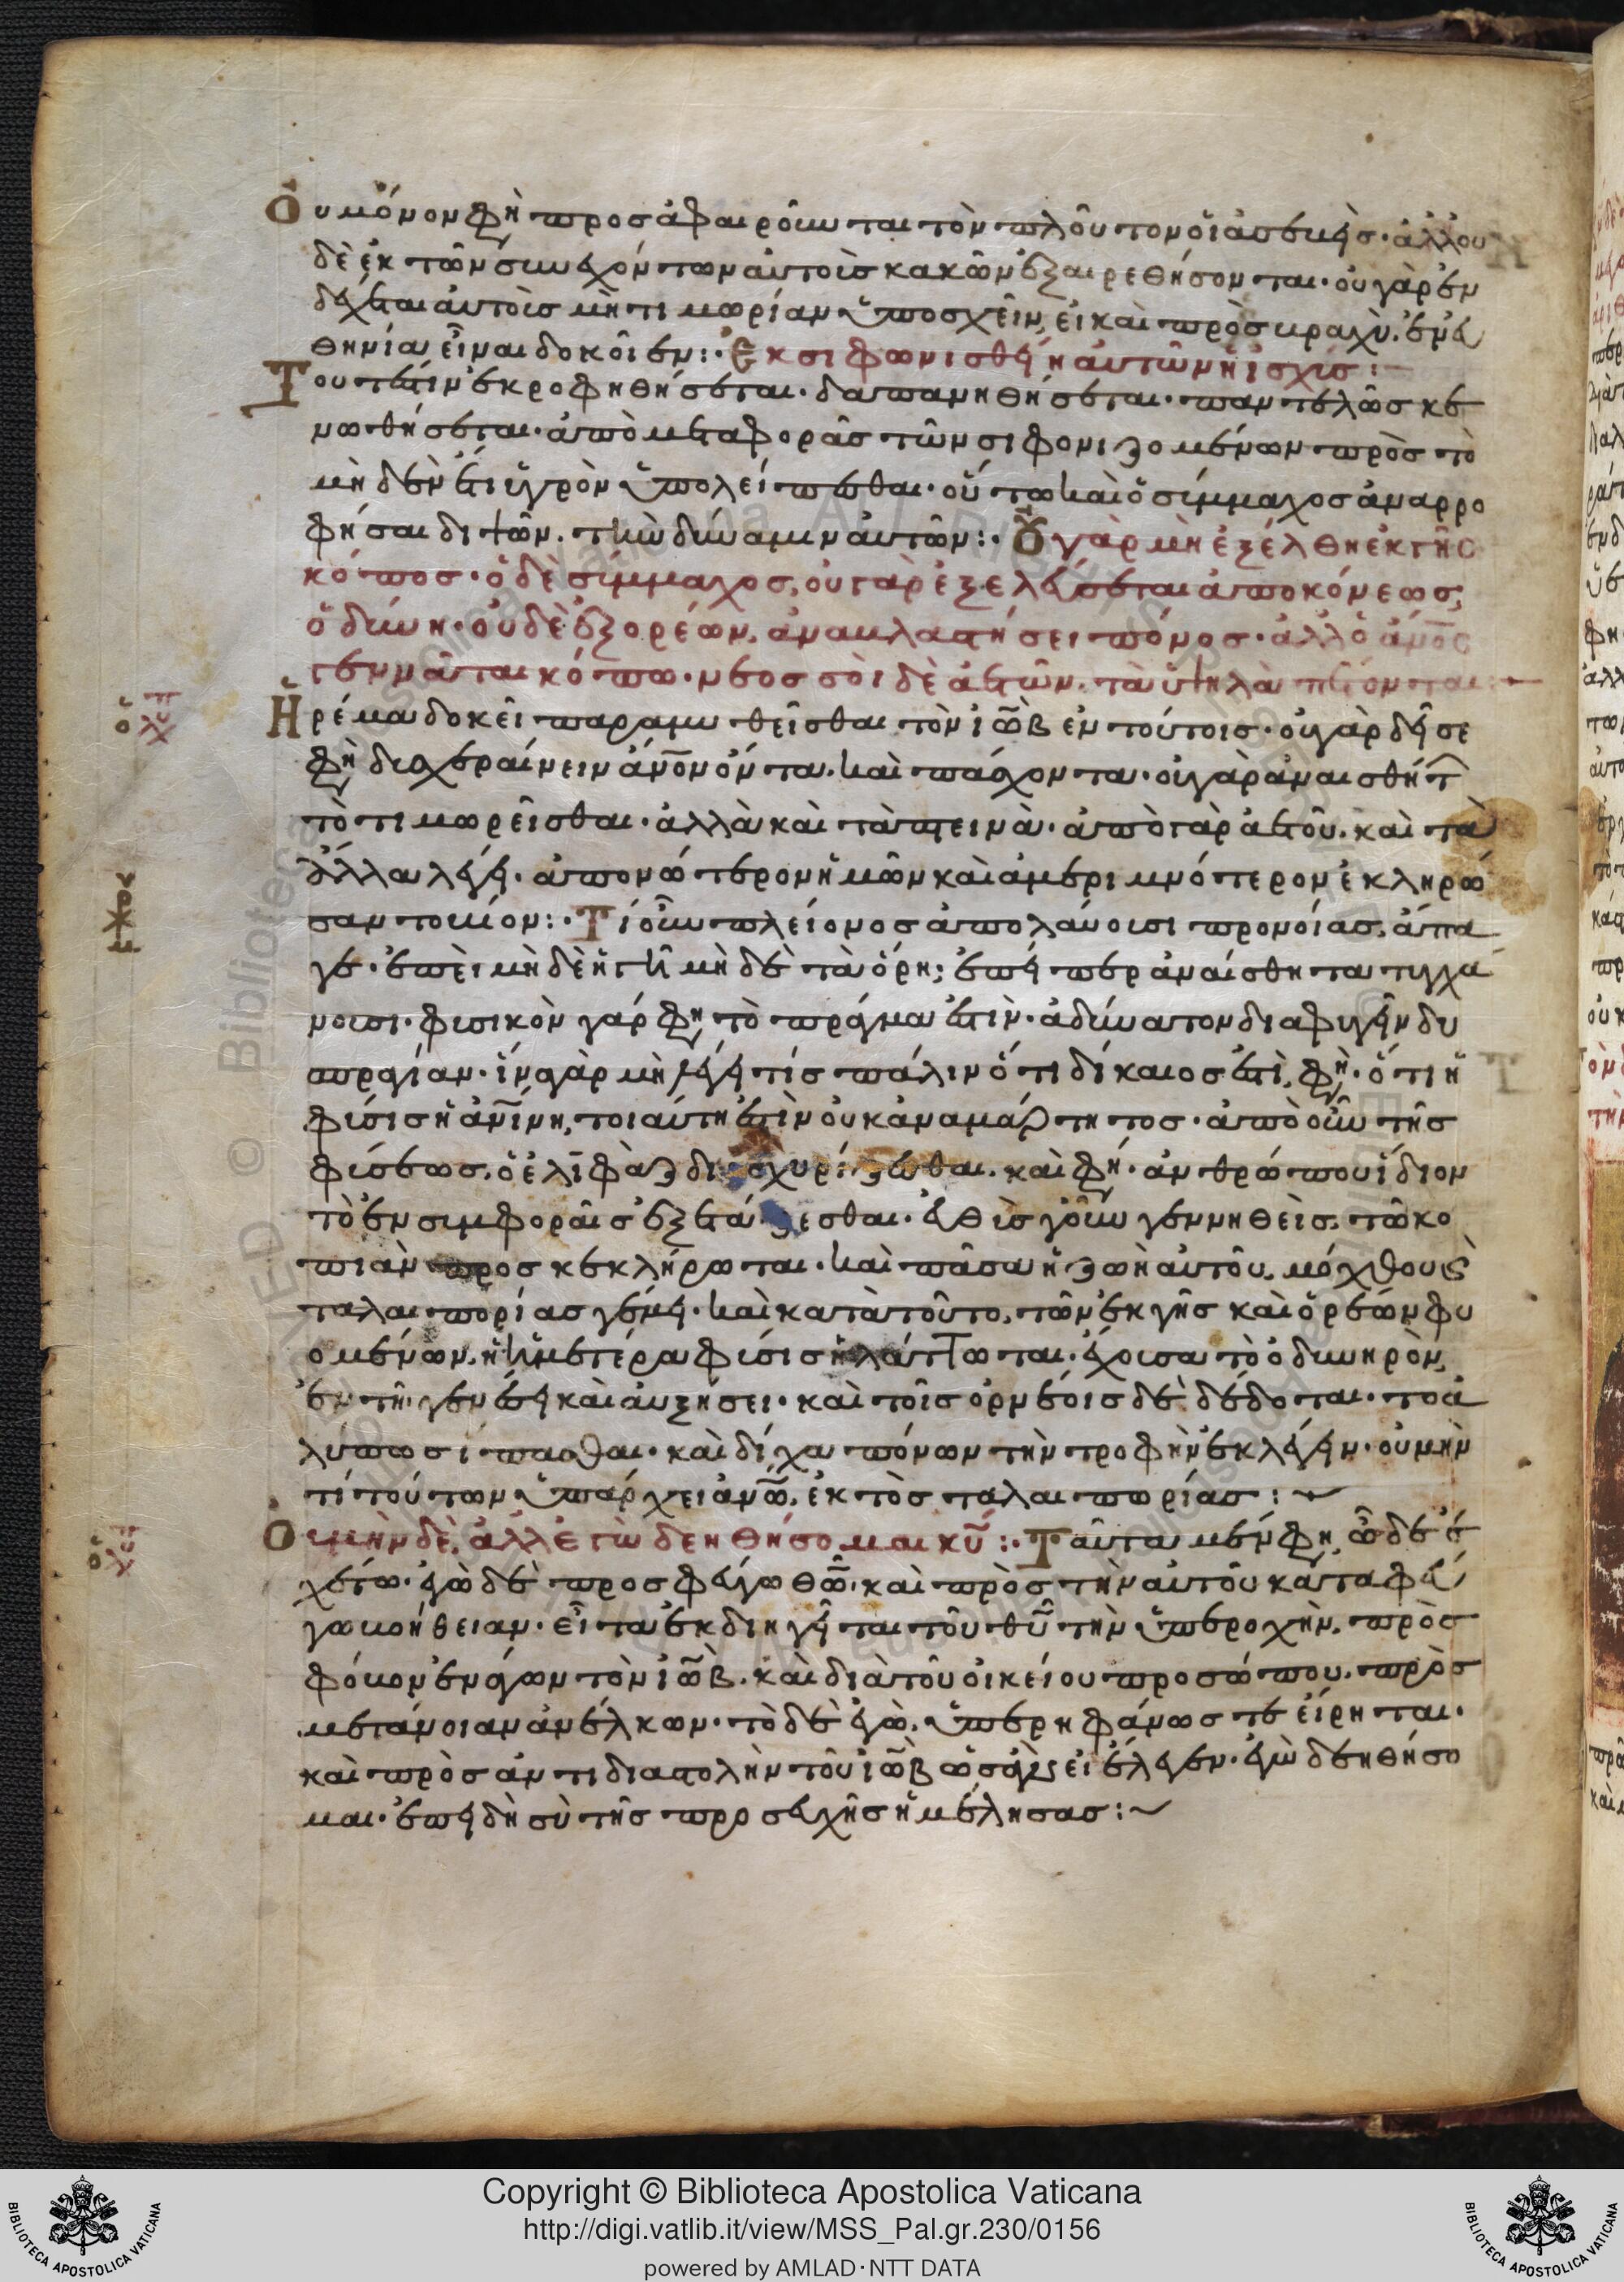 Οὐ μόνον φη προσαφαιροῦνται τὸν πλοῦτον οἱ ἀσεβεῖς· ἀλλ οὐ
δὲ ἐκ τῶν συνεχόντων αὐτοῖς κακῶν ἐξαιρεθήσονται· οὐ γὰρ ἐν
δέχεται αὐτοῖς μὴ τιμωρίαν ὑποσχεῖν, εἰ καὶ πρὸς βραχὺ. ἐν εὐ
θηνία εἶναι δοκοῖεν:· Ἐκσιφωνισθείη αὐτῶν ἡ ἰσχύς:
Τουτέστιν ἐκροφηθήσεται· δαπανηθήσεται· παντελῶς κε
νωθήσεται· ἀπὸ μεταφορᾶς τῶν σιφονιζομένων πρὸς τὸ
μηδὲν ἔτι ὑγρὸν ὑπολείπεσθαι· οὕτω καὶ ὁ σύμμαχος ἀναρρο
φῆσαι διψῶν· τὴν δύναμιν αὐτῶν:· Οὐ γὰρ μὴ ἐξέλθη ἐκ τῆς
κόπος· ὁ δὲ σύμμαχος, οὐ γὰρ ἐξελεύσεται ἀπὸ κόνεως,
ὀδύνη· οὐδὲ ἐξ ὀρέων, ἀναβλαστήσει πόνος· ἀλλ ὁ ἄνος
γεννᾶται κόπω· νεοσσοὶ δὲ ἀετῶν· τὰ ὑψηλὰ πέτονται:
Ἠρέμα δοκεῖ παραμυθεῖσθαι τὸν ἰωβ ἐν τούτοις· οὐ γὰρ δεῖ σε
φη δυσχεραίνειν ἄνον ὄντα· καὶ πάσχοντα· οὐ γὰρ ἀναισθήτ
τὸ τιμωρεῖσθαι· ἀλλὰ καὶ τὰ πτεινὰ· ἀπὸ γὰρ ἀετοῦ· καὶ τὰ
ἄλλα λέγει· ἀπονώτερον ἡμῶν καὶ ἀμεριμνότερον ἐκληρώ
σαντο βίον:· Τί οὖν πλείονος ἀπολαύουσι προνοίας, ἄπα
γε· ἐπεὶ μηδὲ ἡ γῆ μηδὲ τὰ ὄρη; ἐπείπερ ἀναίσθητα τυγχά
νουσι· φυσικὸν γάρ φη τὸ πρᾶγμα ἐστὶν· ἀδύνατον διαφυγεῖν δυ
πραγίαν· ἵνα γὰρ μὴ λέγη τίς πάλιν ὅτι δίκαιος ἐστὶ, φη· ὅτι ἡ
φύσις ἡ ἀνίνη, τοιαύτη ἐστὶν οὐκ ἀναμάρτητος· ἀπὸ οὖν τῆς
φύσεως, ὁ ἐλιφὰζ διισχυρίζεσθαι· καὶ φη· ἀνθρώπου ἴδιον
τὸ ἐν συμφοραῖς ἐξετάζεσθαι· εὐθὺς γοῦν γεννηθεὶς, τῶ κο
πιᾶν προσκεκλήρωται· καὶ πᾶσα ἡ ζωὴ αὐτοῦ, μόχθου καὶ
ταλαιπορίας γέμει· καὶ κατὰ τοῦτο, τῶν ἐκ γῆς καὶ ὀρέων φυ
ομένων, ἡ ἡμετέρα φύσις ἠλάττωται· ἔχουσα τὸ ὀδυνηρὸν,
ἐν τῆ γενέσει καὶ αὐξήσει· καὶ τοῖς ὀρνέοις δὲ δέδοται· τὸ ἀ
λύπως ἵπτασθαι· καὶ δίχα πόνων τὴν τροφὴν ἐκλέγειν· οὐ μὴν
τί τούτων ὑπάρχει ἀνω, ἐκτὸς ταλαιπωρίας:
Οὐ μὴν δὲ, ἀλλ ἐγὼ δεηθήσομαι κυ:· Ταῦτα μέν φη, ὧδε ἐ
χέτω· ἐγὼ δὲ προσφεύγω θω· καὶ πρὸς τὴν αὐτοῦ καταφεύ
γω βοήθειαν· εἶτα ἐκδιηγεῖται τοῦ θυ τὴν ὑπεροχὴν, πρὸς
φόβον ἐνάγων τὸν ἰωβ· καὶ διὰ τοῦ οἰκείου προσώπου, πρὸς
μετάνοιαν ἀνέλκων· τὸ δὲ ἐγὼ, ὑπερηφάνως τε εἴρηται·
καὶ πρὸς ἀντιδιαστολὴν τοῦ ἰωβ ὡσανεὶ ἔλεγεν· ἐγὼ δεηθήσο
μαι· ἐπειδὴ σὺ τῆς προσευχῆς ἠμέλησας:
Copyright © Biblioteca Apostolica Vaticana
http://digi.vatlib.it/view/MSS_Pal.gr.230/0156
powered by AMLAD·NTT DATA
BIBLIOTECA APOSTOLICA VATICANA
BIBLIOTECA APOSTOLICA VATICANA